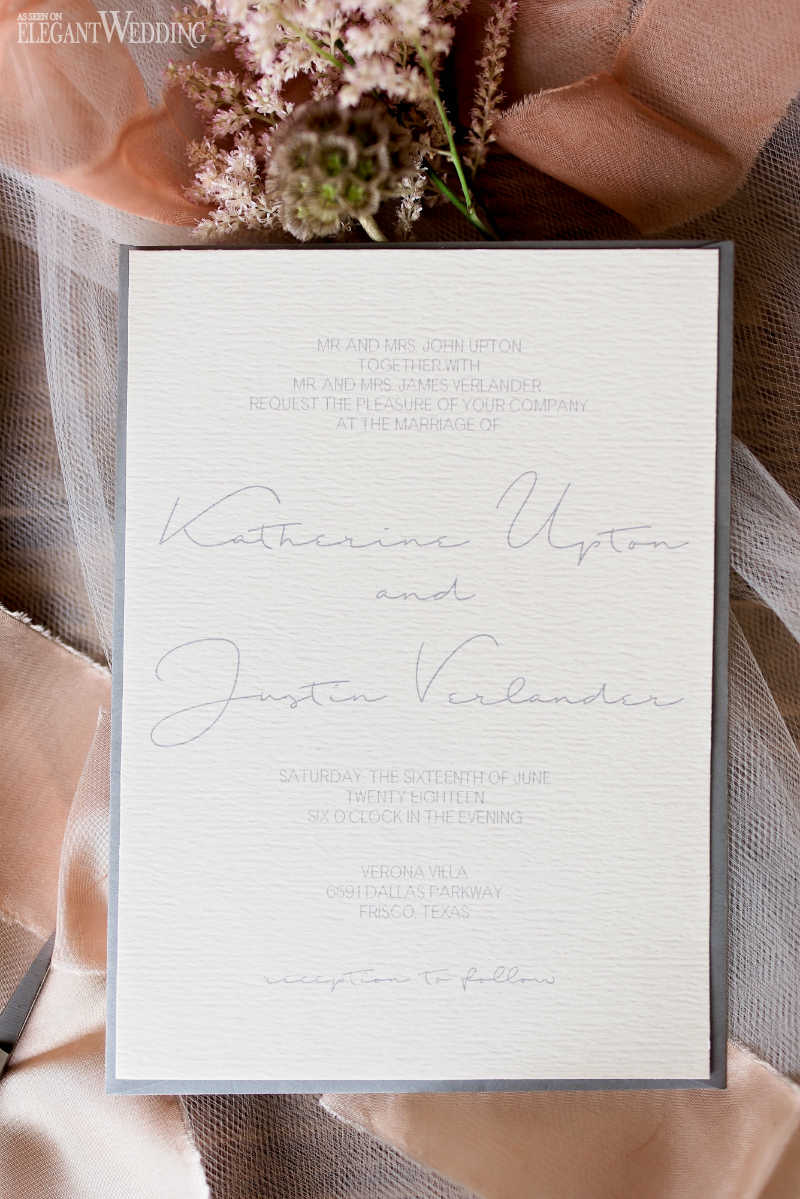 AS SEEN ON
ELEGANTWEDDING
MR. AND MRS. JOHN UPTON
TOGETHER WITH
MR. AND MRS. JAMES VERLANDER
REQUEST THE PLEASURE OF YOUR COMPANY
AT THE MARRIAGE OF
Katherine Upton
and
Justin Verlander
SATURDAY, THE SIXTEENTH OF JUNE
TWENTY EIGHTEEN
SIX O'CLOCK IN THE EVENING
VERONA VILLA
6591 DALLAS PARKWAY
FRISCO, TEXAS
reception to follow